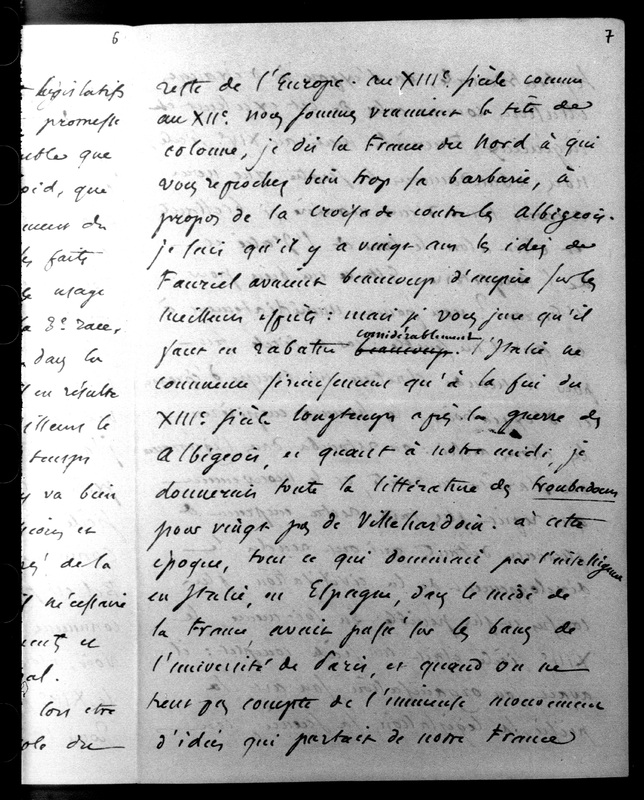 6
législatifs
promesse
que
que
du
faits
usage
3e race,
dans la
en résulte
le
temps
va bien
et
de la
nécessaire
et
lors être
du
7
reste de l'Europe. au XIIIe siècle comme
au XIIe nous sommes vraiment la tête de
colonne, je dis la France du Nord à qui
vous reprochez bien trop sa barbarie, à
propos de la croisade contre les Albigeois.
je sais qu'il y a vingt ans les idées de
Fauriel avaient beaucoup d'empire sur les
meilleurs esprits : mais je vous jure qu'il
considérablement
faut en rabattre beaucoup. l'Italie ne
commence sérieusement qu'à la fin du
XIIIe siècle longtemps après la guerre des
Albigeois, et quant à notre midi, je
donnerais toute la littérature des troubadours
pour vingt pag de Villehardouin. à cette
époque, tout ce qui dominait par l'intelligence
en Italie, en Espagne, dans le midi de
la France, avait passé sur les bancs de
l'université de Paris, et quand on ne
tient pas compte de l'immense mouvement
d'idées qui partait de notre France